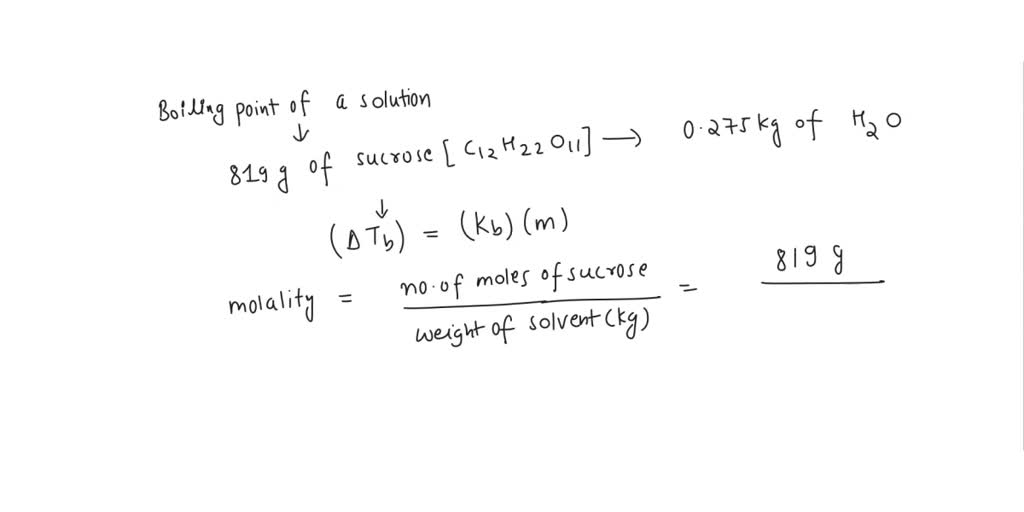 Boiling point of a solution
↓
819 g of sucrose [C12H22O11] → 0.275 kg of H2O
↓
(ΔTb) = (kb) (m)
molality = no. of moles of sucrose / weight of solvent (kg) = 819 g /